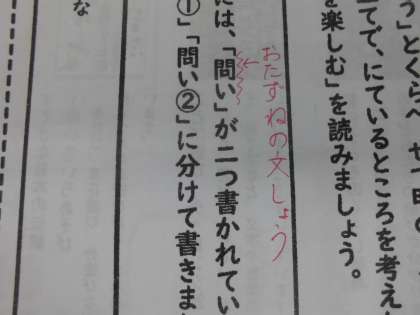 う」とくらべ
てで、にているところを考え
を楽しむ」を読みましょう。
おたずねの文しょう
には、「問い」が二つ書かれてい
①」「問い②」に分けて書きま
な